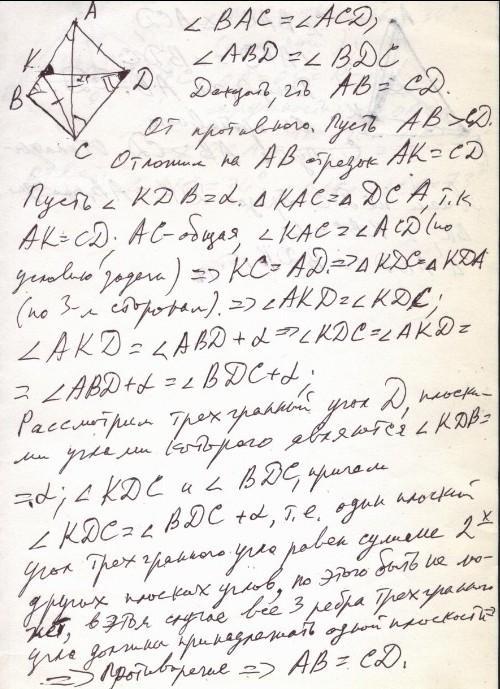 A
∠BAC = ∠ACD;
∠ABD = ∠BDC
K
B
D
C
Доказать, что AB = CD.
От противного. Пусть AB > CD.
Отложим на AB отрезок AK = CD
Пусть ∠KDB = α. △KAC = △DCA, т.к
AK = CD; AC - общая, ∠KAC = ∠ACD (по
условию задачи) ⇒ KC = AD. ⇒ △KDC = △KDA
(по 3-м сторонам). ⇒ ∠AKD = ∠KDC;
∠AKD = ∠ABD + α ⇒ ∠KDC = ∠AKD =
= ∠ABD + α = ∠BDC + α;
Рассмотрим трехгранный угол D, плоски-
ми углами которого являются ∠KDB =
= α; ∠KDC и ∠BDC, причем
∠KDC = ∠BDC + α, т.е. один плоский
угол трехгранного угла равен сумме 2х
других плоских углов, но этого быть не мо-
жет, в этом случае все 3 ребра трехгранного
угла должны принадлежать одной плоскости ⇒
⇒ Противоречие ⇒ AB = CD.